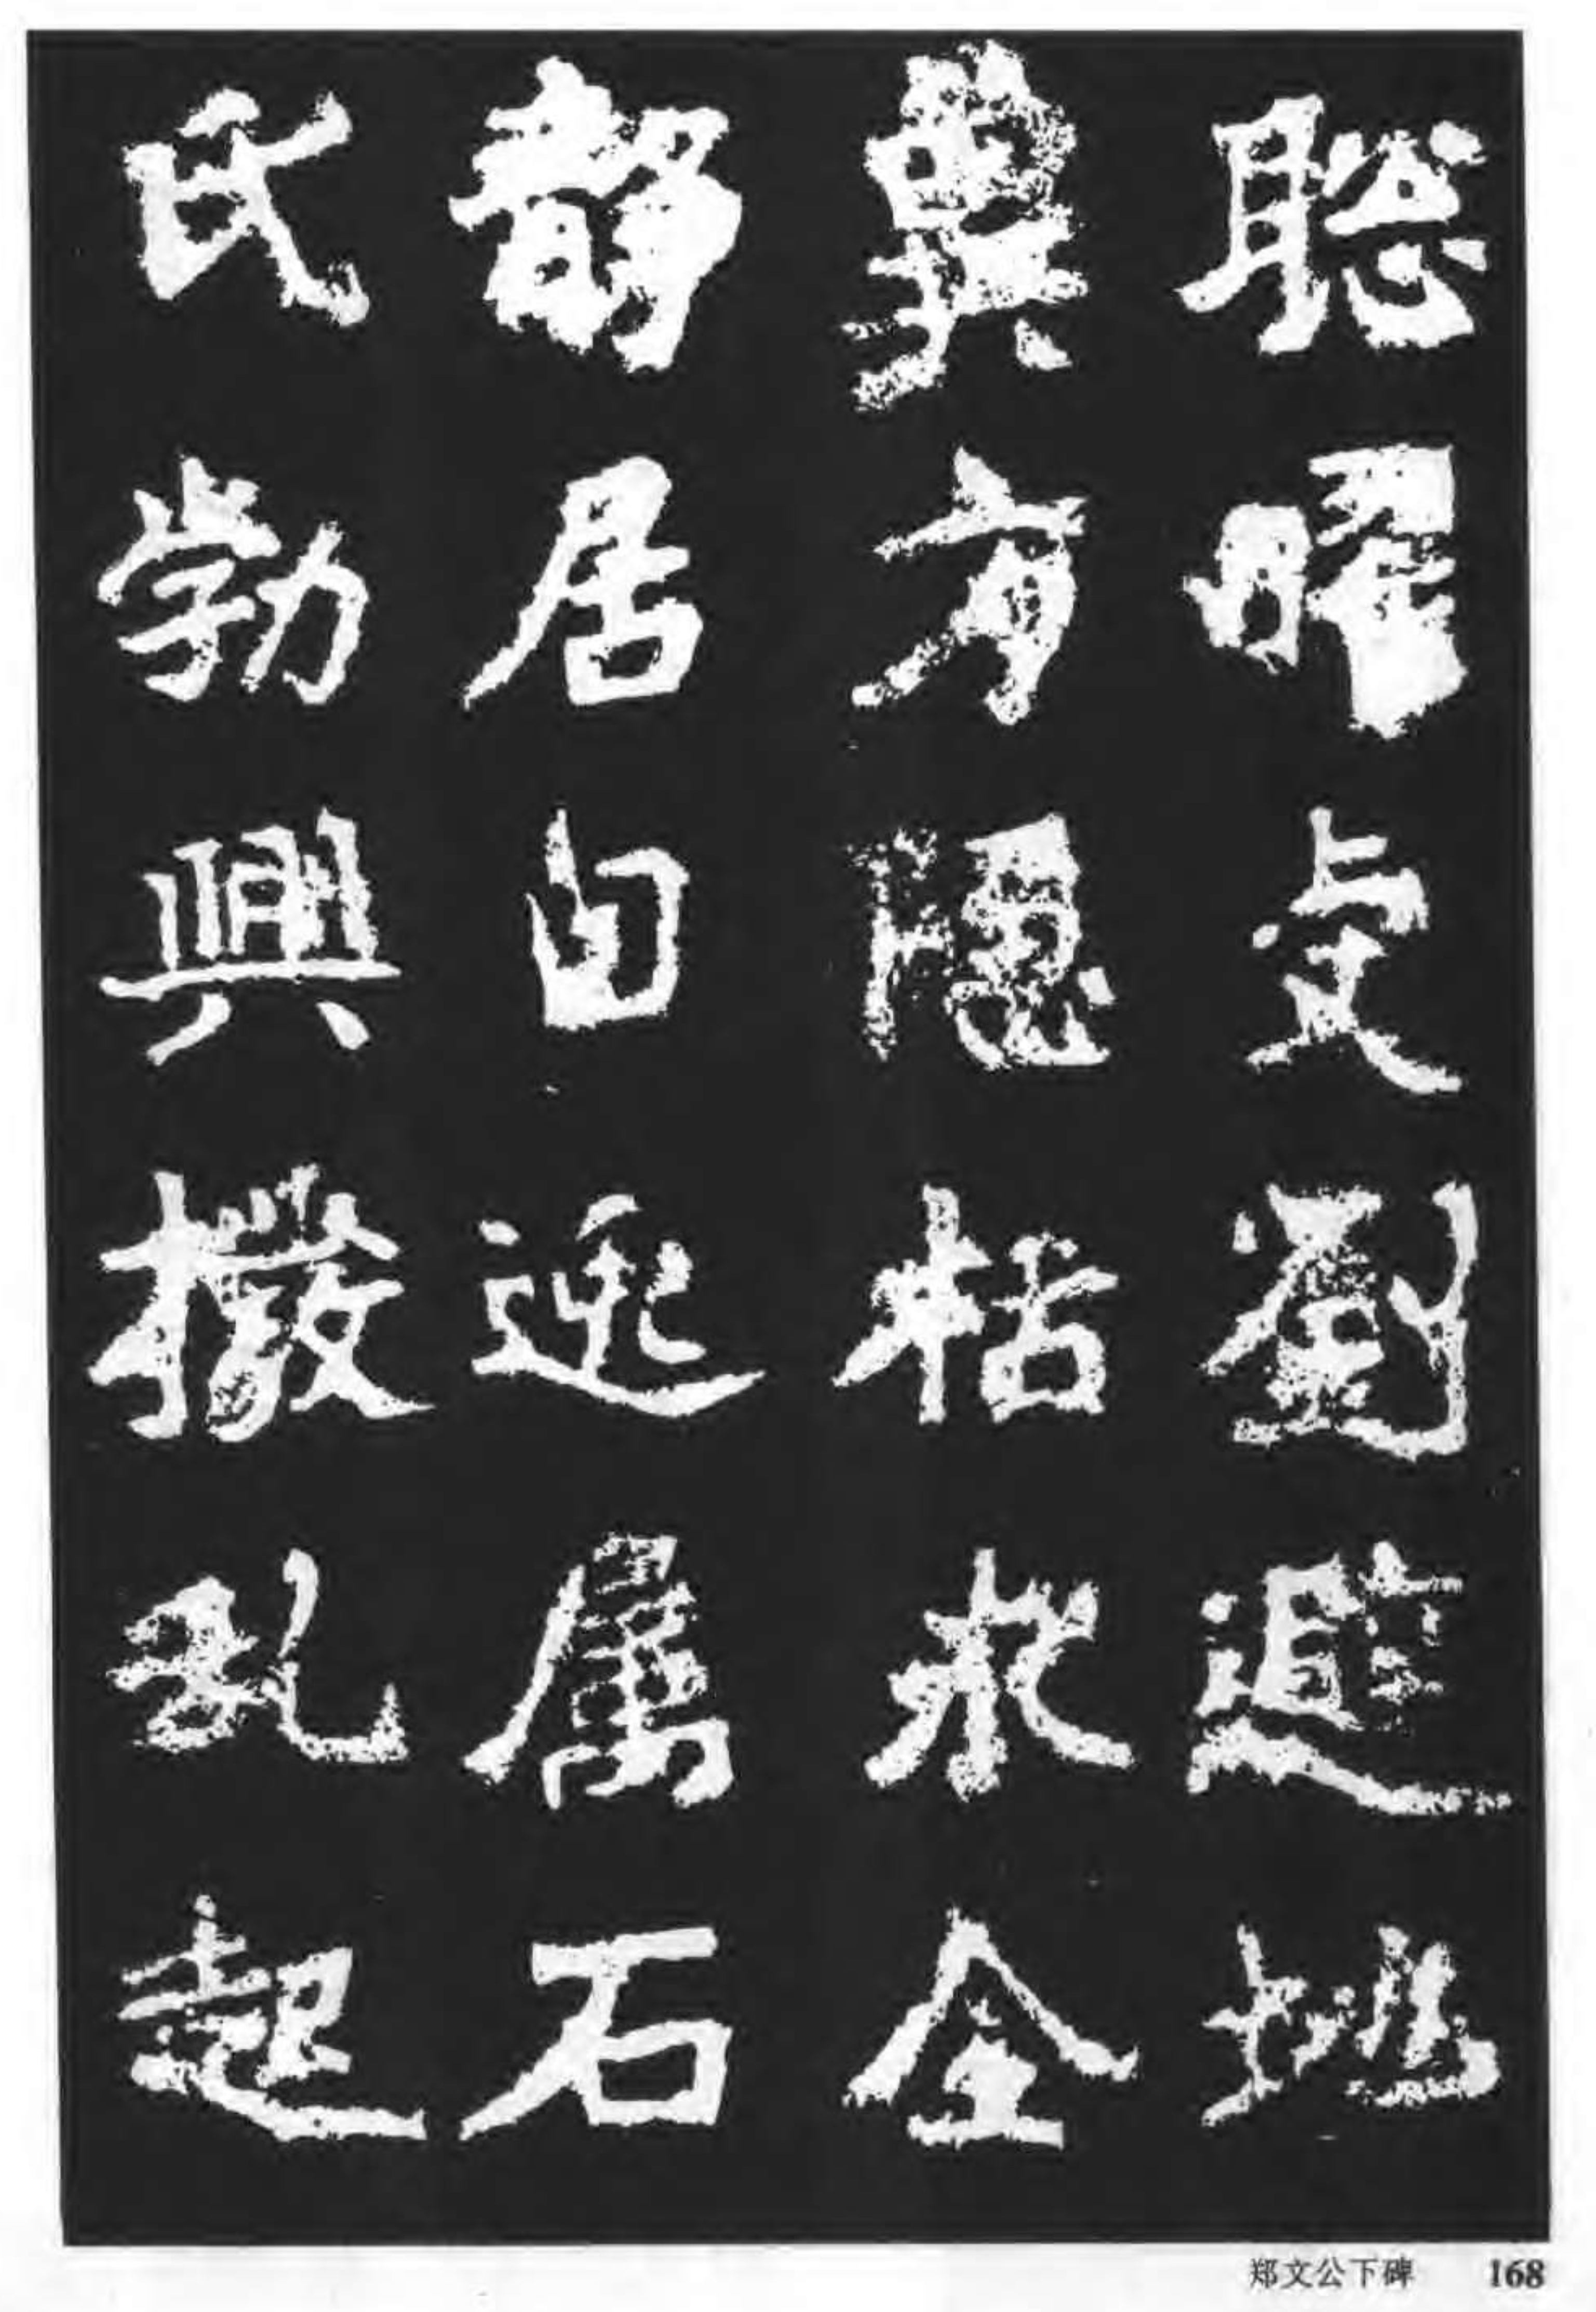 聰曜虔劉避地
冀方隱栝求全
靜居自逸屬石
氏勃興撥亂起
郑文公下碑 168